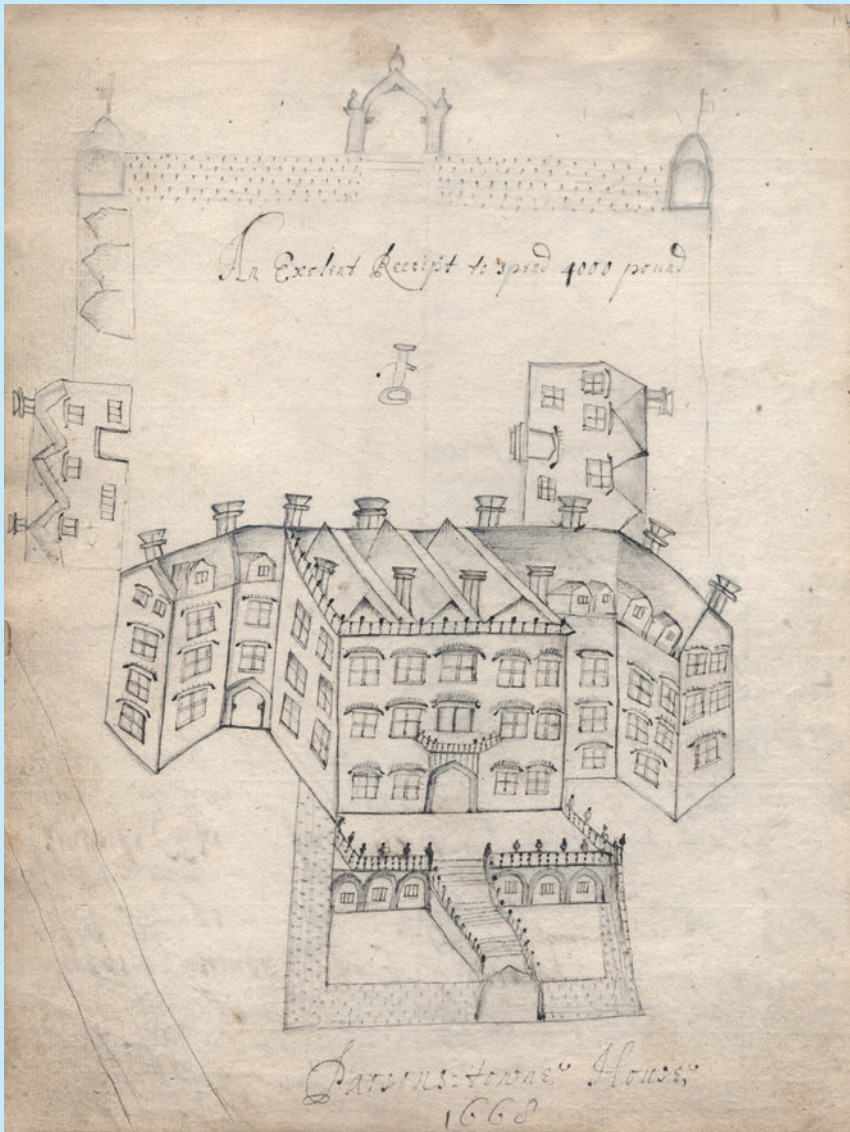 An Exelent Receipt to spend 4000 pound
Parsons-towne House,
1668